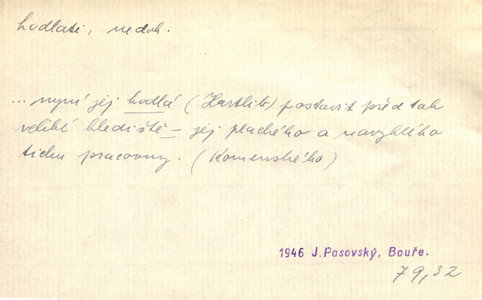 hodlati, nedok.
...nyní jej hodlá (Hartlib) postavit před tak
veliké hlediště – jej plachého a navyklého
tichu pracovny. (Komenského)
1946 J.Pasovský, Bouře.
79,32